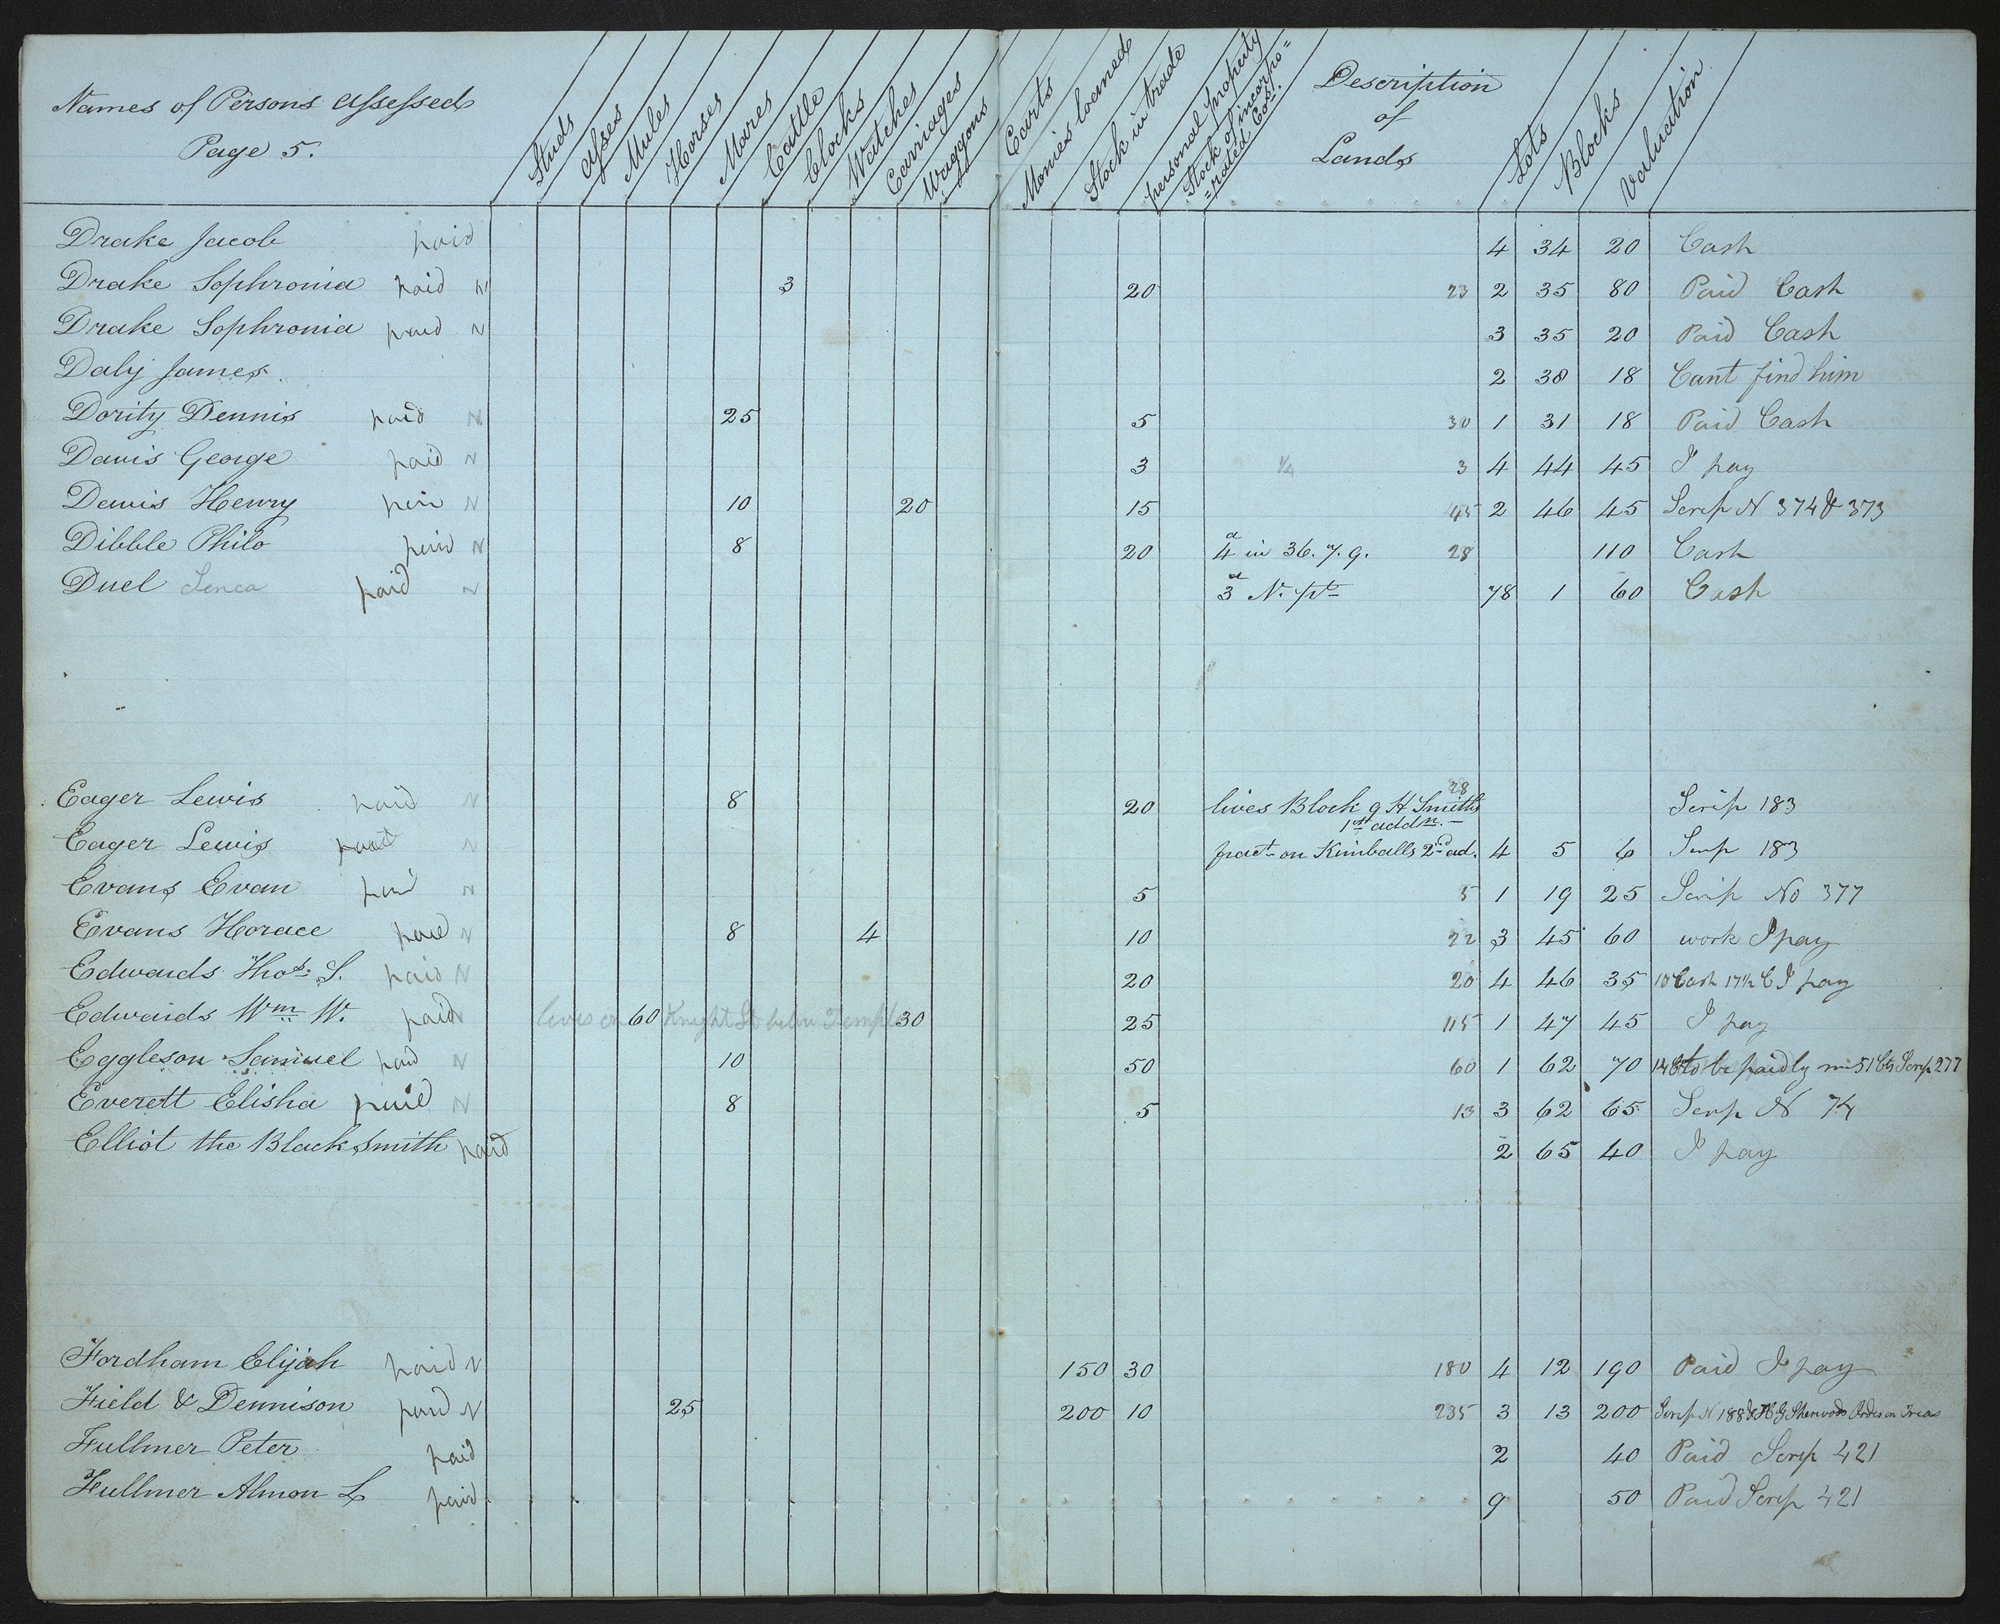 Names of Persons assessed
Page 5.
Studs
Asses
Mules
Horses
Mares
Cattle
Clocks
Watches
Carriages
Waggons
Carts
Monies loaned
Stock in trade
personal property
Stock of incorpo=
=rated Cos.
Description
of
Lands
Lots
Blocks
Valuation
Drake Jacob paid 4 34 20 Cash
Drake Sophronia paid N 3 20 23 2 35 80 Paid Cash
Drake Sophronia paid N 3 35 20 Paid Cash
Daly James 2 38 18 Cant find him
Dority Dennis paid N 25 5 30 1 31 18 Paid Cash
Davis George paid N 3 1/4 3 4 44 45 I pay
Davis Henry paid N 10 20 15 45 2 46 45 Scrip N 374 & 373
Dibble Philo paid N 8 20 4 a in 36. 7. 9. 28 110 Cash
Duel Senea paid N 3 a N. pt 78 1 60 Cash
Eager Lewis paid N 8 20 lives Block 9 H Smiths 28 Scrip 183
1st addn.
Eager Lewis paid N fract on Kimballs 2nd ad. 4 5 6 Scrip 183
Evans Evan paid N 5 5 1 19 25 Scrip No 377
Evans Horace paid N 8 4 10 22 3 45 60 work I pay
Edwards Thos. S. paid N 20 20 4 46 35 Cash 17½ C I pay
Edwards Wm W. paid N lives on 60 Knight St below Temple 30 25 115 1 47 45 I pay
Eggleson Samuel paid N 10 50 60 1 62 70 to be paid by me 51 Cts Scrip 277
Everett Elisha paid N 8 5 13 3 62 65 Scrip N 74
Elliot the Black Smith paid 2 65 40 I pay
Fordham Elijah paid N 150 30 180 4 12 190 Paid I pay
Field & Dennison paid N 25 200 10 235 3 13 200 Scrip N 188 & H G Sherwoods Order on Treas
Fullmer Peter paid 2 40 Paid Scrip 421
Fullmer Almon L paid 9 50 Paid Scrip 421